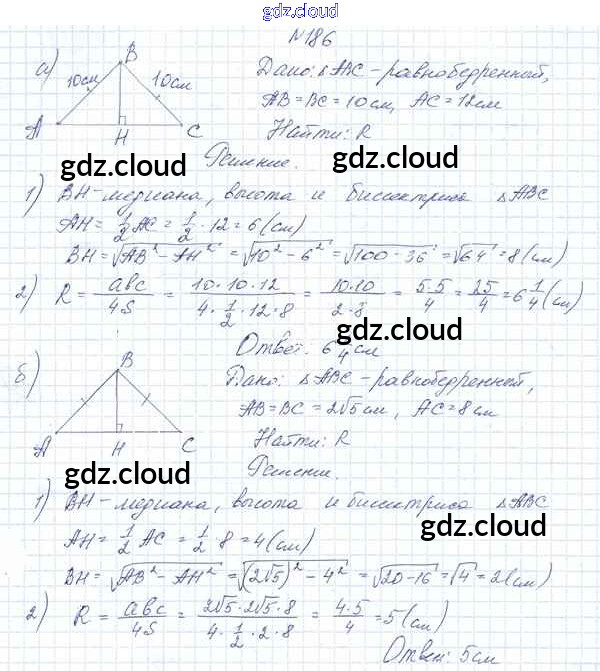 gdz.cloud
№186
а) B 10см 10см A H C
Дано: △ABC - равнобедренный,
AB = BC = 10 см, AC = 12 см
Найти: R
gdz.cloud
gdz.cloud
Решение.
1) BH - медиана, высота и биссектриса △ABC
AH = 1/2 AC = 1/2 · 12 = 6 (см)
BH = √(AB² - AH²) = √(10² - 6²) = √(100 - 36) = √64 = 8 (см)
2) R = abc/4S = (10·10·12)/(4·1/2·12·8) = (10·10)/(2·8) = (5·5)/4 = 25/4 = 6 1/4 (см)
gdz.cloud
gdz.cloud
Ответ: 6 1/4 см
б) B A H C
Дано: △ABC - равнобедренный,
AB = BC = 2√5 см, AC = 8 см
Найти: R
gdz.cloud
gdz.cloud
Решение.
1) BH - медиана, высота и биссектриса △ABC
gdz.cloud
gdz.cloud
AH = 1/2 AC = 1/2 · 8 = 4 (см)
BH = √(AB² - AH²) = √((2√5)² - 4²) = √(20 - 16) = √4 = 2 (см)
2) R = abc/4S = (2√5·2√5·8)/(4·1/2·2·8) = (4·5)/4 = 5 (см)
Ответ: 5 см